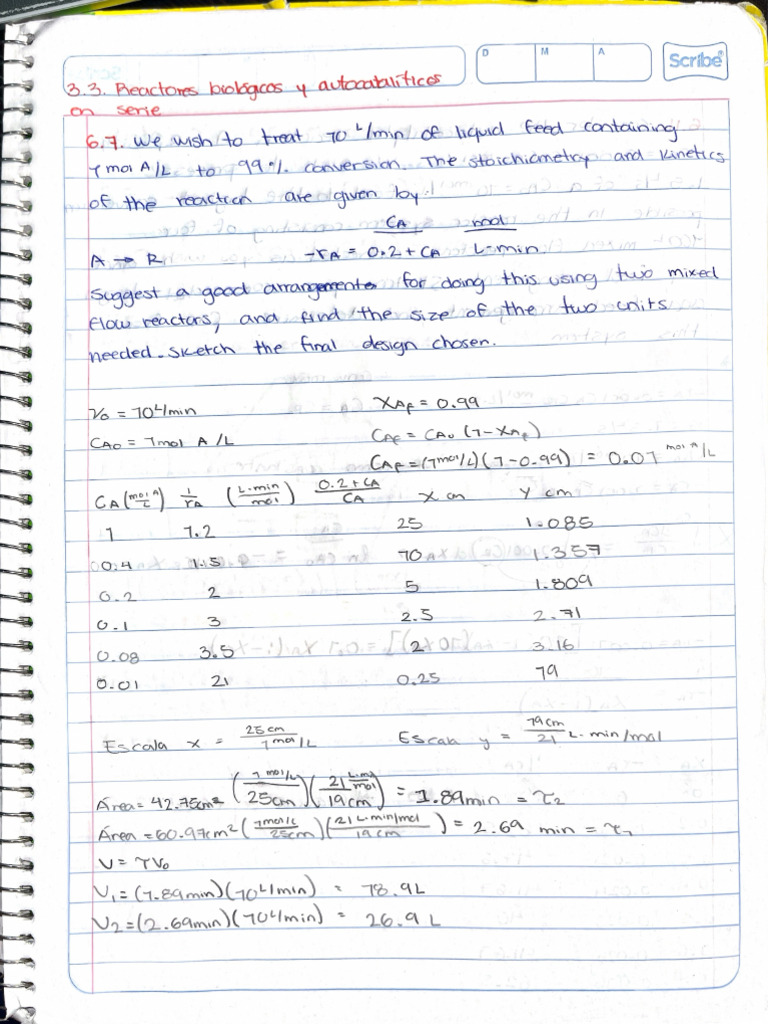 D M A
Scribe®
3.3. Reactores biológicos y autocatalíticos
en serie
6.7. We wish to treat 10 L/min of liquid feed containing
1 mol A/L to 99% conversion. The stoichiometry and kinetics
of the reaction are given by:
A → R -rA = CA/(0.2 + CA) mol/(L·min)
suggest a good arrangements for doing this using two mixed
flow reactors, and find the size of the two units
needed. Sketch the final design chosen.
V0 = 10 L/min XAf = 0.99
CA0 = 1 mol A/L CAf = CA0 (1-XAf)
CAf = (1 mol/L)(1-0.99) = 0.01 mol A/L
CA (mol A/L) 1/rA (L·min/mol) (0.2+CA)/CA X cm Y cm
1 1.2 25 1.085
0.4 1.5 10 1.357
0.2 2 5 1.809
0.1 3 2.5 2.71
0.08 3.5 2 3.16
0.01 21 0.25 19
Escala x = 25cm/1 mol/L Escala y = 19cm/21 L·min/mol
Área = 42.75cm² (1 mol/L/25cm)(21 L·min/mol/19cm) = 1.89min = τ2
Área = 60.97cm² (1mol/L/25cm)(21 L·min/mol/19cm) = 2.69 min = τ1
V = τV0
V1 = (1.89min)(10 L/min) = 18.9L
V2 = (2.69min)(10 L/min) = 26.9 L